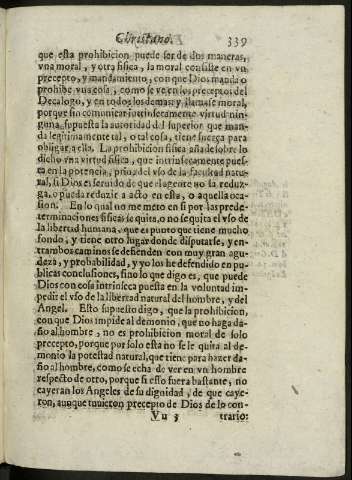 Christiano. 339
que esta prohibicion puede ser de dos maneras,
vna moral, y otra fisica, la moral consiste en vn
precepto, y mandamiento, con que Dios manda o
prohibe vna cosa, como se ve en los preceptos del
Decalogo, y en todos los demas: y llamase moral,
porque sin comunicar intrinsecamente virtud nin-
guna, supuesta la autoridad del superior que man-
da legitimamente tal, o tal cosa, tiene fuerça para
obligar a ella. La prohibicion fisica añade sobre lo
dicho vna virtud fisica, que intrinsecamente pues-
ta en la potencia, priua del vso de la facultad natu-
ral, si Dios es seruido de que el agente no la reduz-
ga, o pueda reduzir a acto en esta, o aquella oca-
sion. En lo qual no me meto en si por las prede-
terminaciones fisicas se quita, o no se quita el vso de
la libertad humana, que es punto que tiene mucho
fondo, y tiene otro lugar donde disputarse, y en-
trambos caminos se defienden con muy gran agu-
deza, y probabilidad, y yo los he defendido en pu-
blicas conclusiones, sino lo que digo es, que puede
Dios con cosa intrinseca puesta en la voluntad im-
pedir el vso de la libertad natural del hombre, y del
Angel. Esto supuesto digo, que la prohibicion,
con que Dios impide al demonio, que no haga da-
ño al hombre, no es prohibicion moral de solo
precepto, porque por solo esta no se le quita al de-
monio la potestad natural, que tiene para hazer da-
ño al hombre, como se echa de ver en vn hombre
respecto de otro, porque si esso fuera bastante, no
cayeran los Angeles de su dignidad, de que caye-
ron, aunque tuuieron precepto de Dios de lo con-
Vu 3 trario: